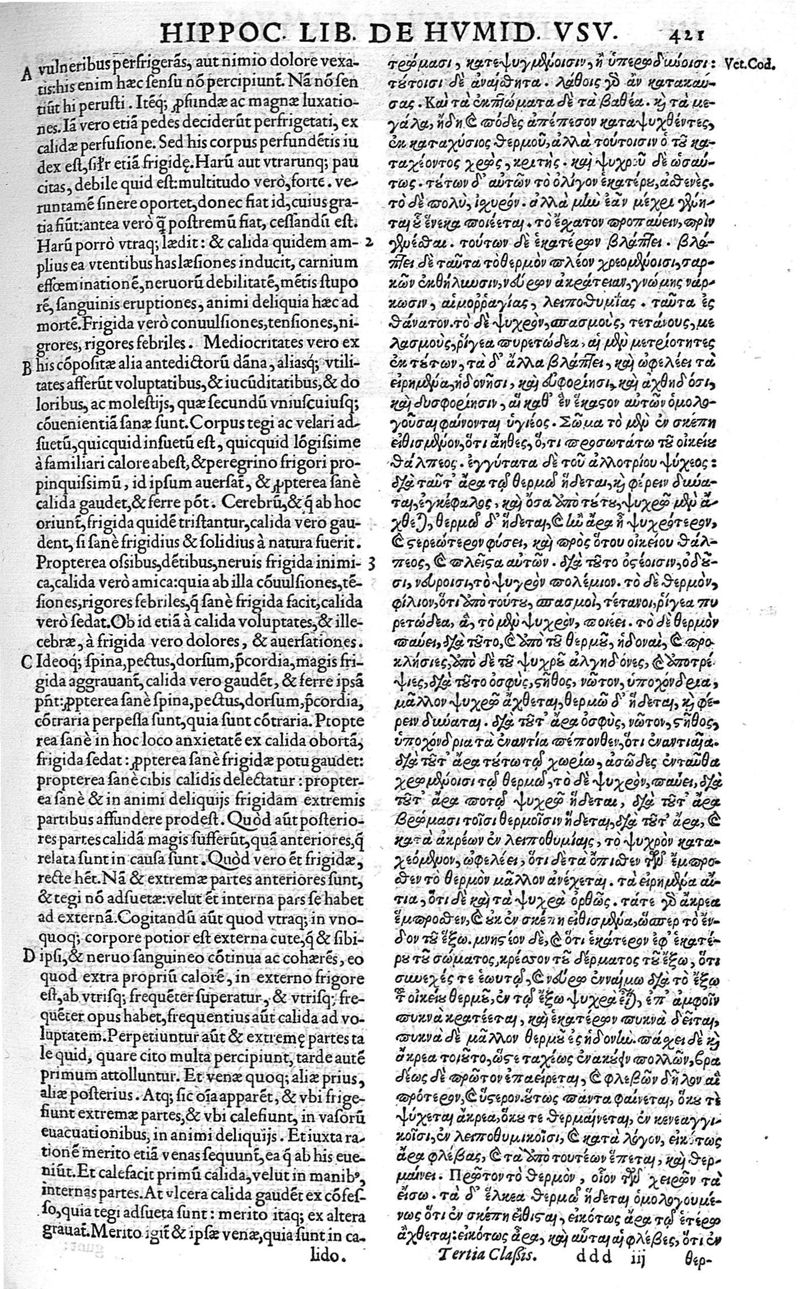 HIPPOC. LIB. DE HVMID. VSV. 421
A vulneribus perfrigerãs, aut nimio dolore vexa-
tis: his enim hæc sensu nõ percipiunt. Nã nõ sen
tiũt hi perusti. Itẽq; ꝓfundæ ac magnæ luxatio-
nes. Iã vero etiã pedes deciderũt perfrigetati, ex
calidæ perfusione. Sed his corpus perfundẽtis iu
dex est, sił'r etiã frigidę. Harũ aut vtrarunq; pau
citas, debile quid est: multitudo verò, forte. ve-
runtamẽ sinere oportet, donec fiat id, cuius gra-
tia fiũt: antea verò q̃ postremũ fiat, cessandũ est.
Harũ porrò vtraq; lædit: & calida quidem am- 2
plius ea vtentibus has læsiones inducit, carnium
effœminationẽ, neruorũ debilitatẽ, mẽtis stupo
rẽ, sanguinis eruptiones, animi deliquia hæc ad
mortẽ. Frigida verò conuulsiones, tensiones, ni-
grores, rigores febriles. Mediocritates vero ex
B his cõpositæ alia antedictorũ dãna, aliasq; vtili-
tates afferũt voluptatibus, & iucũditatibus, & do
loribus, ac molestijs, quæ secundũ vniuscuiusq;
cõuenientiã sanæ sunt. Corpus tegi ac velari ad-
suetũ, quicquid insuetũ est, quicquid lõgissime
à familiari calore abest, & peregrino frigori pro-
pinquissimũ, id ipsum auersat, & ꝓpterea sanè
calida gaudet, & ferre põt. Cerebrũ, & q̃ ab hoc
oriunt, frigida quidẽ tristantur, calida vero gau-
dent, si sanè frigidius & solidius à natura fuerit.
Propterea ossibus, dẽtibus, neruis frigida inimi- 3
ca, calida vero amica: quia ab illa cõuulsiones, tẽ-
siones, rigores febriles, q̃ sanè frigida facit, calida
verò sedat. Ob id etiã à calida voluptates, & ille-
cebræ, à frigida vero dolores, & auersationes.
C Ideoq; spina, pectus, dorsum, p̃cordia, magis fri-
gida aggrauant, calida vero gaudẽt, & ferre ipsã
pñt: ꝓpterea sanè spina, pectus, dorsum, p̃cordia,
cõtraria perpessa sunt, quia sunt cõtraria. Propte
rea sanè in hoc loco anxietatẽ ex calida obortã,
frigida sedat: ꝓpterea sanè frigidæ potu gaudet:
propterea sanè cibis calidis delectatur: propter-
ea sanè & in animi deliquijs frigidam extremis
partibus affundere prodest. Quòd aũt posterio-
res partes calidã magis sufferũt, quã anteriores, q̃
relata sunt in causa sunt. Quòd vero et frigidæ,
recte hẽt. Nã & extremæ partes anteriores sunt,
& tegi nõ adsuetæ: velut et interna pars se habet
ad externã. Cogitandũ aũt quod vtraq; in vno-
quoq; corpore potior est externa cute, q̃ & sibi-
D ipsi, & neruo sanguineo cõtinua ac cohærẽs, eo
quod extra propriũ calorẽ, in externo frigore
est, ab vtrisq; frequẽter superatur, & vtrisq; fre-
quẽter opus habet, frequentius aũt calida ad vo-
luptatem. Perpetiuntur aũt & extremę partes ta
le quid, quare cito multa percipiunt, tarde autẽ
primum attolluntur. Et venæ quoq; aliæ prius,
aliæ posterius. Atq; sic oĩa apparẽt, & vbi frige-
fiunt extremæ partes, & vbi calefiunt, in vasorũ
euacuationibus, in animi deliquijs. Et iuxta ra-
tionẽ merito etiã venas sequunt, ea q̃ ab his eue-
niũt. Et calefacit primũ calida, velut in manib',
internas partes. At vlcera calida gaudẽt ex cõfes-
so, quia tegi adsueta sunt: merito itaq; ex altera
grauat. Merito igit & ipsæ venæ, quia sunt in ca-
lido.
τρώμασι, κατεψυγμένοισιν, ἢ ὑπερωδίνοισι: Vet. Cod.
τούτοισι δὲ ἀναίσθητα. λάθοις γὸ ἂν κατακαύ-
σας. Καὶ τὰ ἐκπτώματα δὲ τὰ βαθέα. κỳ τὰ με-
γάλα, ἤδη καὶ πόδες ἀπέπεσον καταψυχθέντες,
ἐκ καταχύσιος θερμοῦ, ἀλλὰ τούτοισιν ὁ τοῦ κα-
ταχέοντος χρὼς, κριτής. καὶ ψυχροῦ δὲ ὡσαύ-
τως. τούτων δ' αὐτῶν τὸ ὀλίγον ἑκατέρου, ἀσθενές.
τὸ δὲ πολὺ, ἰσχυρόν. ἀλλὰ μὴν ἐὰν μέχρι γένη-
ται οὗ ἕνεκα ποιέεται. τὸ ἔσχατον προπαύειν, πρὶν
γενέσθαι. τούτων δὲ ἑκάτερον βλάπτει. βλά-
πτει δὲ ταῦτα τὸ θερμὸν πλέον χρεομένοισι, σαρ-
κῶν ἐκθήλυσιν, νεύρων ἀκράτειαν, γνώμης νάρ-
κωσιν, αἱμορραγίας, λειποθυμίας. ταῦτα ἐς
θάνατον. τὸ δὲ ψυχρὸν, σπασμοὺς, τετάνους, με
λασμοὺς, ῥίγεα πυρετώδεα, αἱ μὲν μετριότητες
ἐκ τούτων, τὰ δ' ἄλλα βλάπτει, καὶ ὠφελέει τὰ
εἰρημένα, ἡδονῇσι, καὶ εὐφορίῃσι, καὶ ἀχθηδόσι,
καὶ δυσφορίῃσιν, αἳ καθ' ἓν ἕκαστον αὐτῶν ὁμολο-
γοῦσαι φαίνονται ὑγιέος. Σῶμα τὸ μὲν ἐν σκέπῃ
εἰθισμένον, ὅτι ἀηθες, ὅ, τι προσωτάτω τοῦ οἰκείου
θάλπεος. ἐγγύτατα δὲ τοῦ ἀλλοτρίου ψύχεος:
διὰ ταῦτ' ἄρα τῷ θερμῷ ἥδεται, κỳ φέρειν δύνα-
ται, ἐγκέφαλος, καὶ ὅσα ὑπὸ τούτου, ψυχρῷ μὲν ἄ-
χθεται, θερμῷ δ' ἥδεται, καὶ ἢν ἄρα ἦ ψυχρότερον,
καὶ στερεώτερον φύσει, καὶ πρὸς ὅτου οἰκείου θάλ-
πεος, καὶ πλεῖστα αὐτῶν. διὰ τοῦτο ὀστέοισιν, ὀδοῦ-
σι, νεύροισι, τὸ ψυχρὸν πολέμιον. τὸ δὲ θερμὸν,
φίλιον, ὅτι ὑπὸ τούτου, σπασμοὶ, τέτανοι, ῥίγεα πυ
ρετώδεα, ἃ, τὸ μὲν ψυχρὸν, ποιέει. τὸ δὲ θερμὸν
παύει, διὰ τοῦτο, καὶ ὑπὸ τοῦ θερμοῦ, ἡδοναὶ, καὶ προ-
κλήσιες, ὑπὸ δὲ τοῦ ψυχροῦ ἀλγηδόνες, καὶ ὑποτρέ-
ψιες, διὰ τοῦτο ὀσφὺς, στῆθος, νῶτον, ὑποχόνδρια,
μᾶλλον ψυχρῷ ἄχθεται, θερμῷ δ' ἥδεται, κỳ φέ-
ρειν δύναται. διὰ τοῦτ' ἄρα ὀσφὺς, νῶτον, στῆθος,
ὑποχόνδρια τὰ ἐναντία πέπονθεν, ὅτι ἐναντιαῖα.
διὰ τοῦτ' ἄρα τούτῳ τῷ χωρίῳ, ἀσώδες ἐνταῦθα
χρωμένοισι τῷ θερμῷ, τὸ δὲ ψυχρὸν, παύει, διὰ
τοῦτ' ἄρα ποτῷ ψυχρῷ ἥδεται, διὰ τοῦτ' ἄρα
βρώμασι τοῖσι θερμοῖσιν ἥδεται, διὰ τοῦτ' ἄρα, καὶ
κατὰ ἀκρέων ἐν λειποθυμίαις, τὸ ψυχρὸν κατα-
χεόμενον, ὠφελέει, ὅτι δὲ τὰ ὄπισθεν τῶν ἔμπρο-
σθεν τὸ θερμὸν μᾶλλον ἀνέχεται. τὰ εἰρημένα αἴ-
τια, ὅτι δὲ καὶ τὰ ψυχρὰ ὀρθῶς. τά τε γὸ ἀκρέα
ἔμπροσθεν, καὶ οὐκ ἐν σκέπῃ εἰθισμένα, ὥσπερ τὸ ἔν-
δον τοῦ ἔξω. μνηστέον δὲ, καὶ ὅτι ἑκάτερον ἐφ' ἑκατέ-
ρου τοῦ σώματος, κρέσσον τοῦ δέρματος τοῦ ἔξω, ὅτι
συνεχές τε ἑωυτῷ, καὶ νεύρῳ ἐναίμῳ διὰ τὸ ἔξω
τοῦ οἰκείου θερμοῦ, ἐν τῷ ἔξω ψυχρῷ εἶναι, ἐπ' ἀμφοῖν
πυκνὰ κρατέεται, καὶ ἑκατέρων πυκνὰ δεῖται,
πυκνὰ δὲ μᾶλλον θερμοῦ ἐς ἡδονήν. πάσχει δὲ κỳ
ἀκρέα τοιοῦτο, ὥστε ταχέως ἐνακούειν πολλῶν, βρα
δέως δὲ πρῶτον ἐπαίρεται, καὶ φλεβῶν δῆλον αἳ
πρότερον, καὶ ὕστερον. οὕτως πάντα φαίνεται, ὅκου τε
ψύχεται ἀκρέα, ὅκου τε θερμαίνεται, ἐν κενεαγγι-
κοῖσι, ἐν λειποθυμικοῖσι, καὶ κατὰ λόγον, εἰκότως
ἄρα φλέβας, καὶ τὰ ὑπὸ τουτέων ἕπεται, καὶ θερ-
μαίνει. Πρῶτον τὸ θερμὸν, οἷον τῶν χειρῶν τὰ
εἴσω. τὰ δ' ἕλκεα θερμῷ ἥδεται ὁμολογουμέ-
νως ὅτι ἐν σκέπῃ εἴθισται, εἰκότως ἄρα τῷ ἑτέρῳ
ἄχθεται: εἰκότως ἄρα, καὶ αὗται αἱ φλέβες, ὅτι ἐν
Tertia Classis. ddd iij θερ-